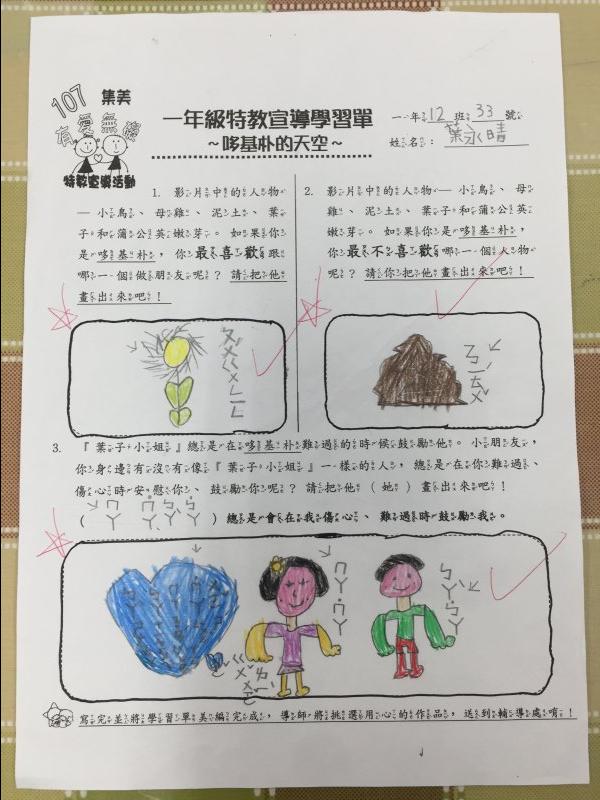 107 集美
有愛無礙
特教宣導活動
一年級特教宣導學習單
~哆基朴的天空~
一年12班33號
姓名：葉永晴
1. 影片中的人物
—小鳥、母雞、泥土、葉
子和蒲公英嫩芽。如果你
是哆基朴，你最喜歡跟
哪一個做朋友呢？請把他
畫出來吧！
2. 影片中的人物—小鳥、母
雞、泥土、葉子和蒲公英
嫩芽。如果你是哆基朴，
你最不喜歡哪一個人物
呢？請你把他畫出來吧！
ㄆㄨˊㄍㄨㄥㄧㄥ
ㄋㄧˊㄊㄨˇ
3. 『葉子小姐』總是在哆基朴難過的時候鼓勵他。小朋友，
你身邊有沒有像『葉子小姐』一樣的人，總是在你難過、
傷心時安慰你、鼓勵你呢？請把他（她）畫出來吧！
（ㄇㄚ ˙ㄇㄚ ㄅㄚˋ ˙ㄅㄚ）總是會在我傷心、難過時鼓勵我。
ㄇㄚ ˙ㄇㄚ
ㄅㄚˋ ˙ㄅㄚ
寫完並將學習單美編完成，導師將挑選用心的作品，送到輔導處唷！